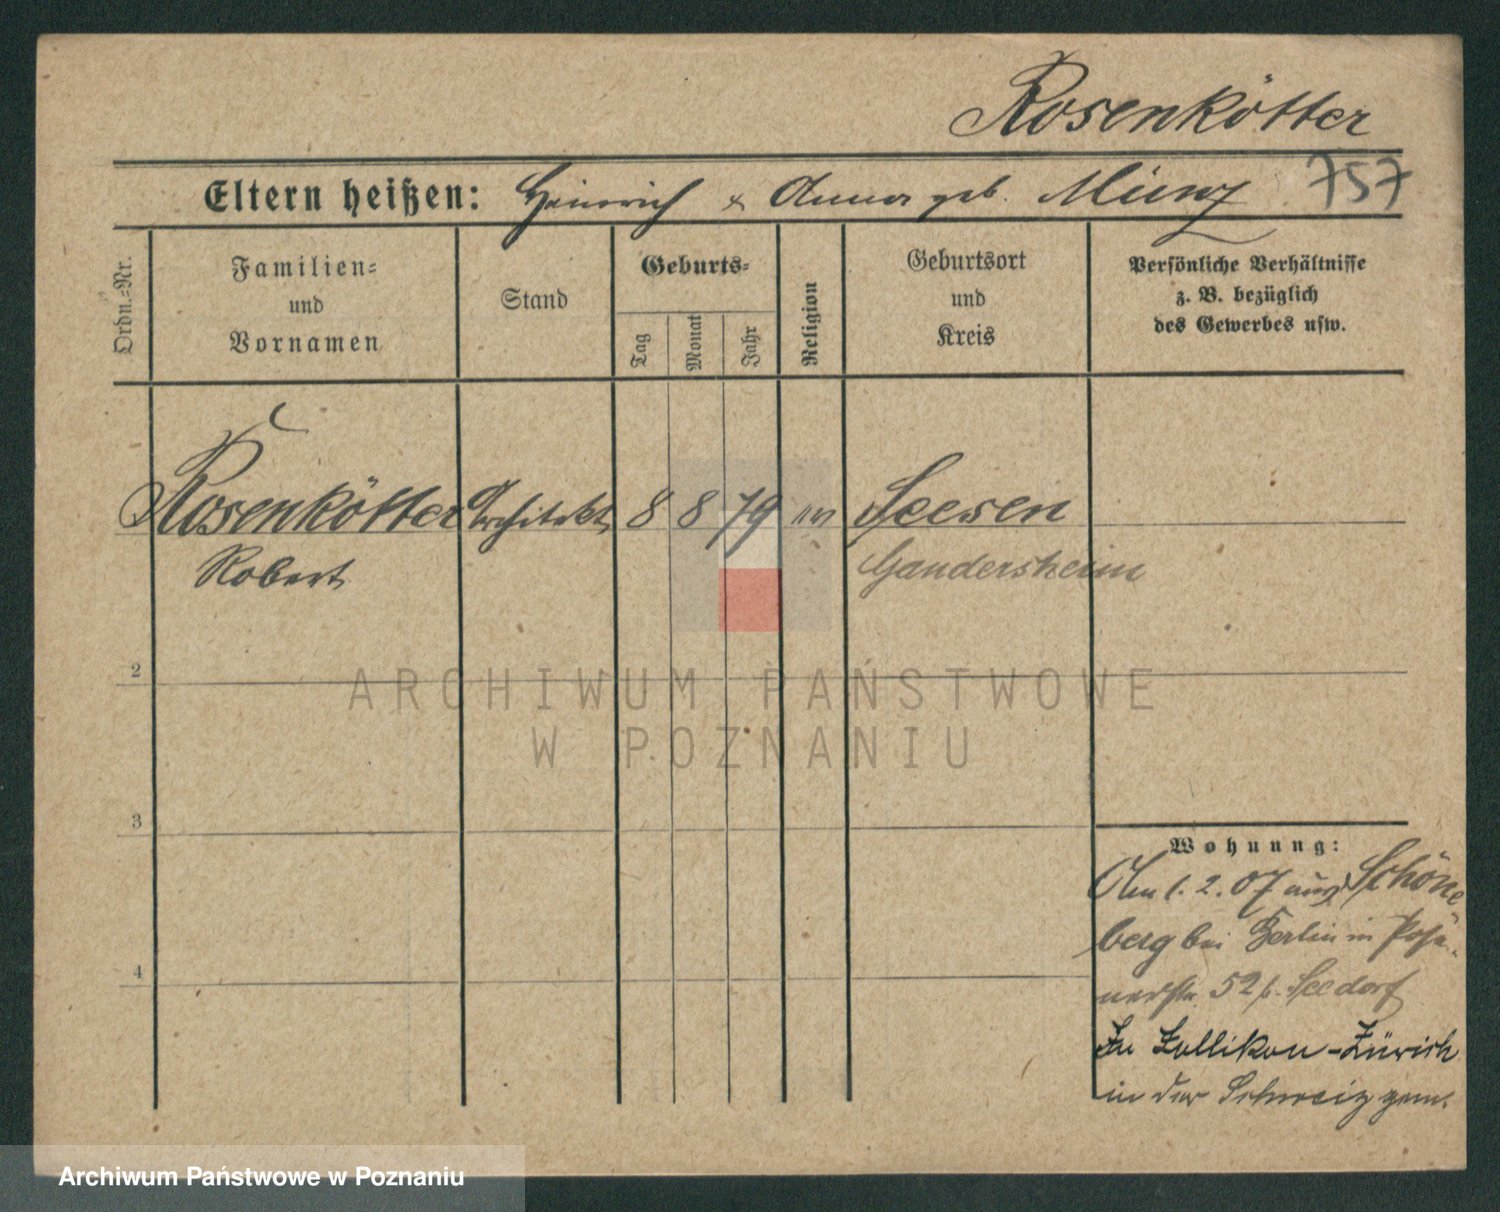 Rosenkötter
Eltern heißen: Heinrich & Anna geb. Münz 757
Ordn.-Nr.
Familien-
und
Vornamen
Stand
Geburts-
Tag
Monat
Jahr
Religion
Geburtsort
und
Kreis
Persönliche Verhältnisse
z. B. bezüglich
des Gewerbes usw.
Rosenkötter Architekt 8 8 79 Seesen
Robert Gandersheim
2
3
4
Wohnung:
Am 1. 2. 07 aus Schöne
berg bei Berlin in Pose-
nerstr. 52 b. Seedorf
In Zollikon-Zürich
in der Schweiz gem.
ARCHIWUM PAŃSTWOWE
W POZNANIU
Archiwum Państwowe w Poznaniu